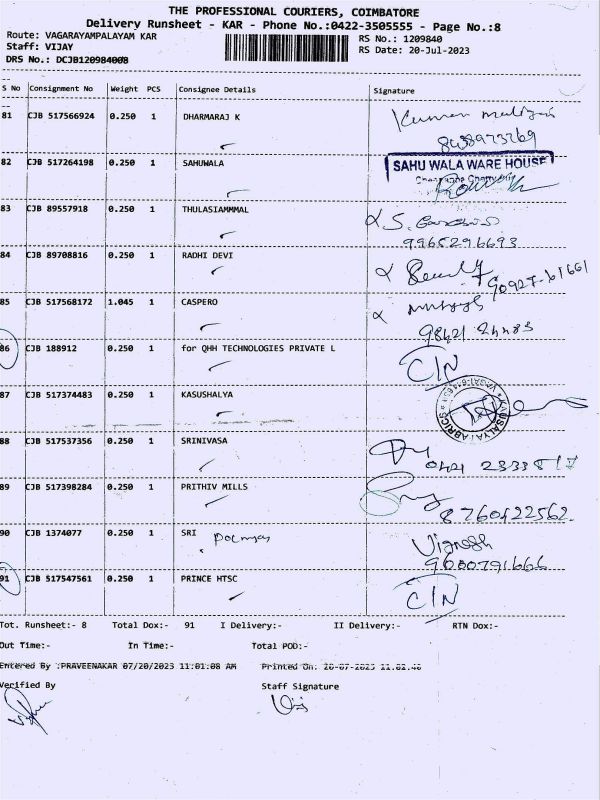 THE PROFESSIONAL COURIERS, COIMBATORE
Delivery Runsheet - KAR - Phone No.:0422-3505555 - Page No.:8
Route: VAGARAYAMPALAYAM KAR
RS No.: 1209840
Staff: VIJAY
RS Date: 20-Jul-2023
DRS No.: DCJB120984008
S No Consignment No Weight PCS Consignee Details Signature
81 CJB 517566924 0.250 1 DHARMARAJ K Kumar
8438973269
82 CJB 517264198 0.250 1 SAHUWALA SAHU WALA WARE HOUSE
83 CJB 89557918 0.250 1 THULASIAMMMAL
9965296693
84 CJB 89708816 0.250 1 RADHI DEVI
90927-61661
85 CJB 517568172 1.045 1 CASPERO
98421 24483
86 CJB 188912 0.250 1 for QHH TECHNOLOGIES PRIVATE L C/N
87 CJB 517374483 0.250 1 KASUSHALYA
88 CJB 517537356 0.250 1 SRINIVASA
0421 2333817
89 CJB 517398284 0.250 1 PRITHIV MILLS
8760422562.
90 CJB 1374077 0.250 1 SRI Vignesh
9600791666
91 CJB 517547561 0.250 1 PRINCE HTSC C/N
Tot. Runsheet:- 8 Total Dox:- 91 I Delivery:- II Delivery:- RTN Dox:-
Out Time:- In Time:- Total POD:-
Entered By :PRAVEENAKAR 07/20/2023 11:01:08 AM Printed On: 20-07-2023 11.02.48
Verified By Staff Signature